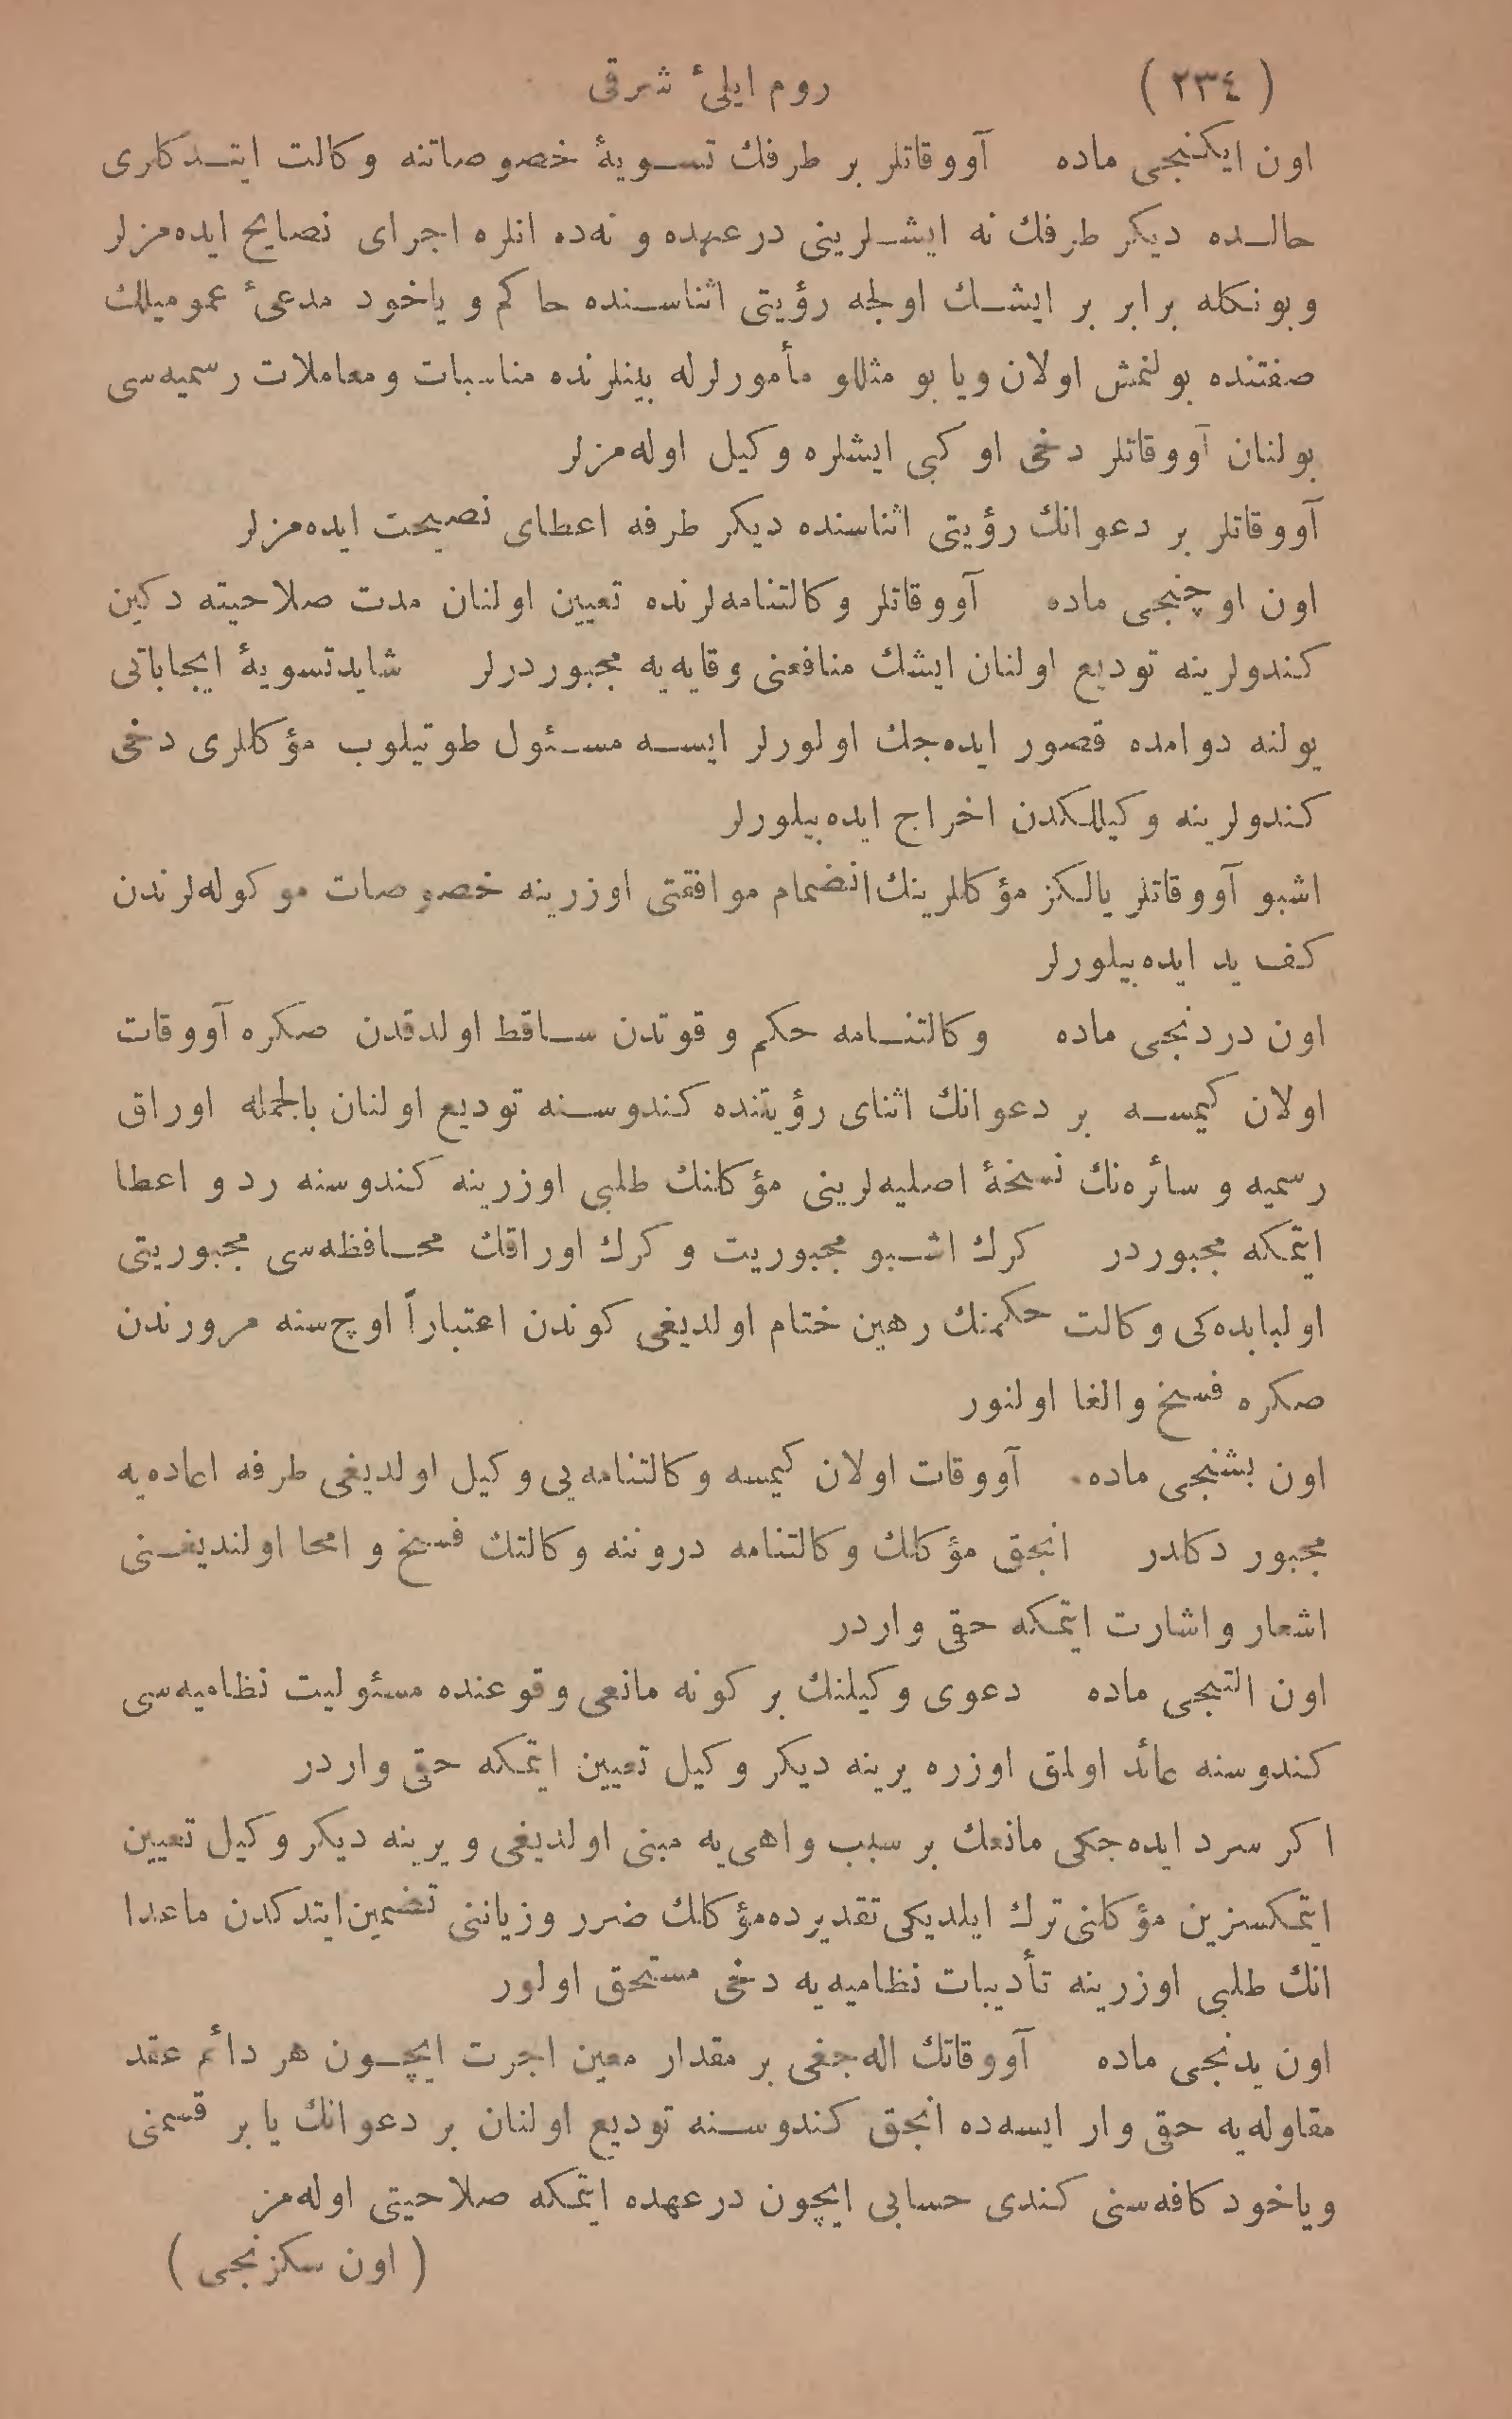 ( ٢٣٤ ) روم ايلئ شرقی
اون ايكنجی ماده آووقاتلر بر طرفك تسويۀ خصوصاتنه وكالت ايتدكلری
حالده ديكر طرفك نه ايشلرينی درعهده و نه‌ده انلره اجرای نصايح ايده‌مزلر
وبونكله برابر بر ايشك اولجه رؤيتی اثناسنده حاكم و ياخود مدعئ عموميلك
صفتنده بولنمش اولان ويا بو مثللو مأمورلرله بينلرنده مناسبات ومعاملات رسميه‌سی
بولنان آووقاتلر دخی او كبی ايشلره وكيل اوله‌مزلر
آووقاتلر بر دعوانك رؤيتی اثناسنده ديكر طرفه اعطای نصيحت ايده‌مزلر
اون اوچنجی ماده آووقاتلر وكالتنامه‌لرنده تعيين اولنان مدت صلاحيته دكين
كندولرينه توديع اولنان ايشك منافعنی وقايه‌يه مجبوردرلر شايدتسويۀ ايجاباتی
يولنه دوامده قصور ايده‌جك اولورلر ايسه مسئول طوتيلوب مؤكللری دخی
كندولرينه وكيللكدن اخراج ايده‌بيلورلر
اشبو آووقاتلر يالكز مؤكللرينك انضمام موافقتی اوزرينه خصوصات موكوله‌لرندن
كف يد ايده‌بيلورلر
اون دردنجی ماده وكالتنامه حكم و قوتدن ساقط اولدقدن صكره آووقات
اولان كيمسه بر دعوانك اثنای رؤيتنده كندوسنه توديع اولنان بالجمله اوراق
رسميه و سائره‌نك نسخۀ اصليه‌لرينی مؤكلنك طلبی اوزرينه كندوسنه رد و اعطا
ايتمكه مجبوردر كرك اشبو مجبوريت و كرك اوراقك محافظه‌سی مجبوريتی
اولبابده‌كی وكالت حكمنك رهين ختام اولديغی كوندن اعتباراً اوچ‌سنه مرورندن
صكره فسخ والغا اولنور
اون بشنجی ماده آووقات اولان كيمسه وكالتنامه‌يی وكيل اولديغی طرفه اعاده‌يه
مجبور دكلدر انجق مؤكلك وكالتنامه دروننه وكالتك فسخ و امحا اولنديغنی
اشعار واشارت ايتمكه حقی واردر
اون التنجی ماده دعوی وكيلنك بر كونه مانعی وقوعنده مسئوليت نظاميه‌سی
كندوسنه عائد اولمق اوزره يرينه ديكر وكيل تعيين ايتمكه حقی واردر
اكر سرد ايده‌جكی مانعك بر سبب واهی‌يه مبنی اولديغی و يرينه ديكر وكيل تعيين
ايتمكسزين مؤكلنی ترك ايلديكی تقديرده‌مؤكلك ضرر وزياننی تضمين‌ايتدكدن ماعدا
انك طلبی اوزرينه تأديبات نظاميه‌يه دخی مستحق اولور
اون يدنجی ماده آووقاتك اله‌جغی بر مقدار معين اجرت ايچون هر دائم عقد
مقاوله‌يه حقی وار ايسه‌ده انجق كندوسنه توديع اولنان بر دعوانك يا بر قسمنی
وياخود كافه‌سنی كندی حسابی ايچون درعهده ايتمكه صلاحيتی اوله‌مز
( اون سكزنجی )